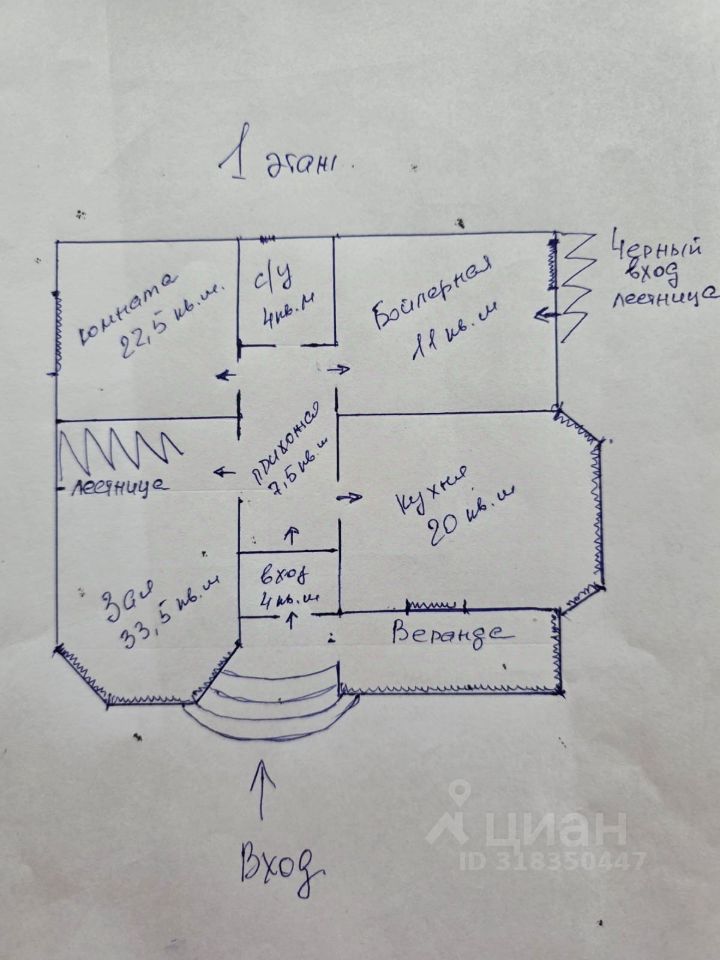 1 этаж
комната
22,5 кв.м.
с/у
4кв.м
Бойлерная
11 кв.м
Черный
вход
лестница
прихожая
7,5 кв.м
лестница
Кухня
20 кв.м
вход
4 кв.м
Зал
33,5 кв.м
Веранда
Вход
циан
ID 318350447